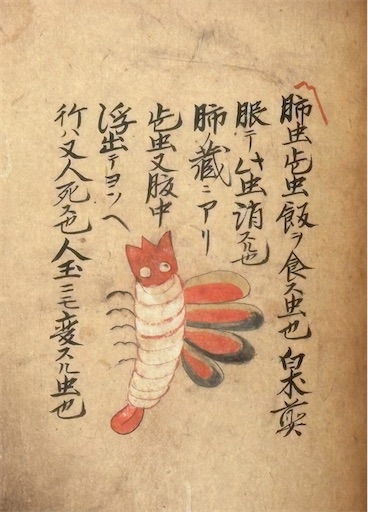 肺虫此虫飯ヲ食ス虫也 白朮煎
服テ此虫消スル也
肺ノ蔵ニアリ
此虫又腹中
浮出テヨソヘ
行ハ又人死スル也 人玉ニモ変スル虫也